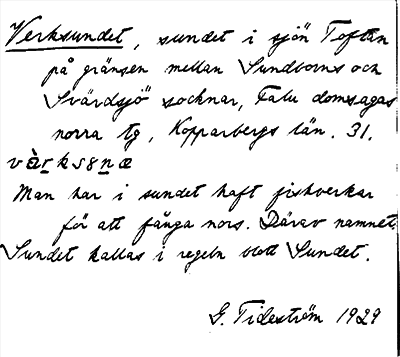 Verksundet, sundet i sjön Toftan
på gränsen mellan Sundborns och
Svärdsjö socknar, Falu domsagas
norra tg, Kopparbergs län. 31.
værksɞnæ
Man har i sundet haft fiskverkar
för att fånga nors. Därav namnet.
Sundet kallas i regeln blott Sundet.
G. Tideström 1929